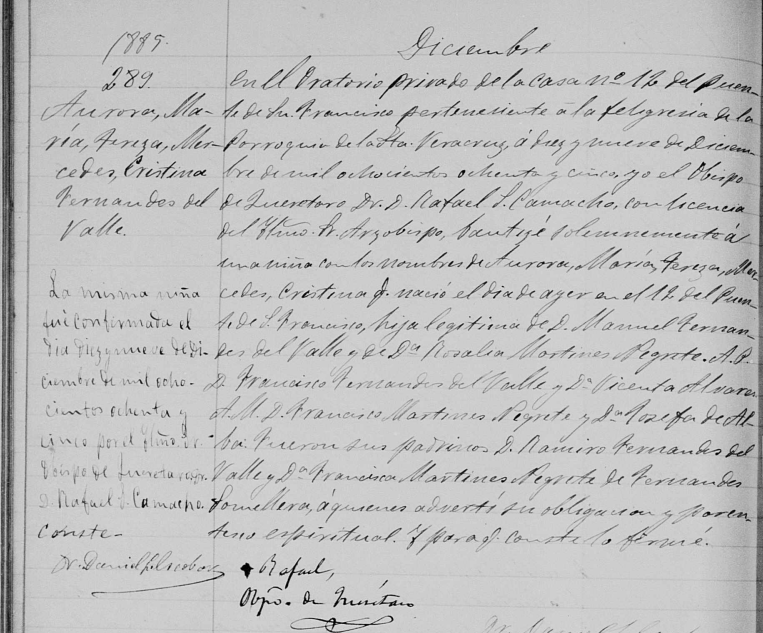 1885.
Diciembre
289.
Aurora, Ma-
ría, Tereza, Mer-
cedes, Cristina
Fernandes del
Valle.
La misma niña
fué confirmada el
dia diez y nueve de Di-
ciembre de mil ocho-
cientos ochenta y
cinco por el Yltmo. Sr.
Obispo de Queretaro Dr.
D. Rafael S. Camacho.
Conste-
Dr. Daniel Escobar
En el Oratorio privado de la casa nº 12 del Puen-
te de Sn. Francisco perteneciente á la feligresia de la
Parroquia de la Sta. Veracruz, á diez y nueve de Diciem-
bre de mil ochocientos ochenta y cinco, yo el Obispo
de Queretaro Dr. D. Rafael S. Camacho, con licencia
del Yltmo. Sr. Arzobispo, bautizé solemnemente á
una niña con los nombres de Aurora, María, Tereza, Mer-
cedes, Cristina q. nació el dia de ayer en el 12 del Puen-
te de S. Francisco, hija legitima de D. Manuel Fernan-
des del Valle y de Da. Rosalia Martines Negrete. A.P.
D. Francisco Fernandes del Valle y Da. Vicenta Alvares
A.M. D. Francisco Martines Negrete y Da. Josefa de Al-
ba. Fueron sus padrinos D. Ramiro Fernandes del
Valle y Da. Francisca Martines Negrete de Fernandes
Somellera, á quienes advertí su obligacion y paren-
tesco espiritual. Y para q. conste lo firmé.
+ Rafael,
Obpo. de Querétaro